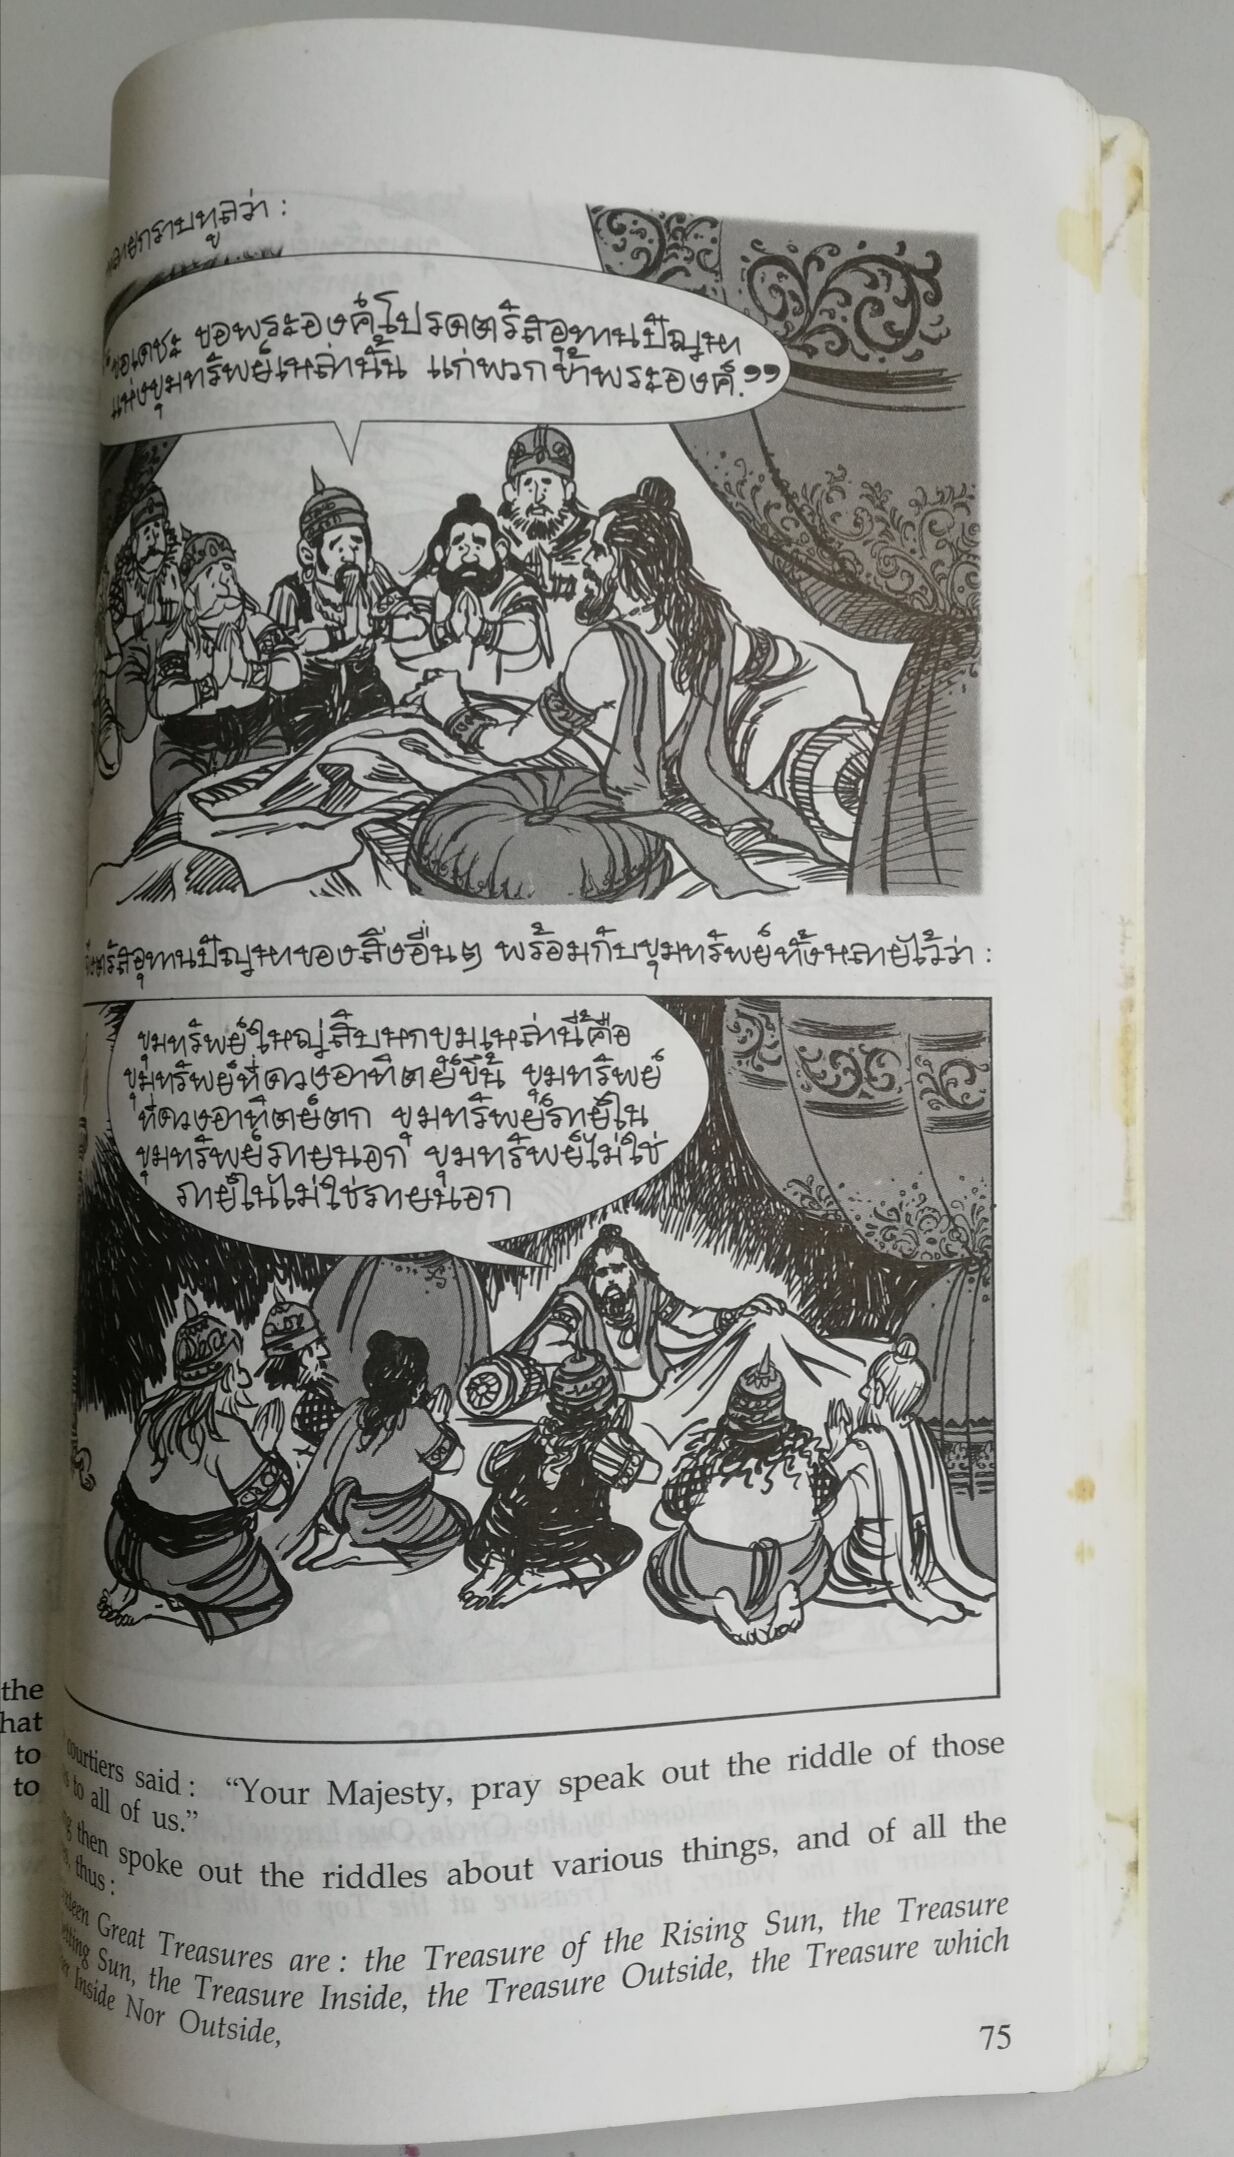 กราบทูลว่า :
ขอเดชะ ขอพระองค์โปรดตรัสอุทานปัญหา
แห่งขุมทรัพย์เหล่านั้น แก่พวกข้าพระองค์."
ตรัสอุทานปัญหาของสิ่งอื่นๆ พร้อมกับขุมทรัพย์ทั้งหลายไว้ว่า :
ขุมทรัพย์ใหญ่สิบหกขุมเหล่านี้คือ
ขุมทรัพย์ที่ดวงอาทิตย์ขึ้น ขุมทรัพย์
ที่ดวงอาทิตย์ตก ขุมทรัพย์ภายใน
ขุมทรัพย์ภายนอก ขุมทรัพย์ไม่ใช่
ภายในไม่ใช่ภายนอก
the
hat
to
to
courtiers said : "Your Majesty, pray speak out the riddle of those
to all of us."
then spoke out the riddles about various things, and of all the
thus :
Great Treasures are : the Treasure of the Rising Sun, the Treasure
Sun, the Treasure Inside, the Treasure Outside, the Treasure which
Inside Nor Outside,
75